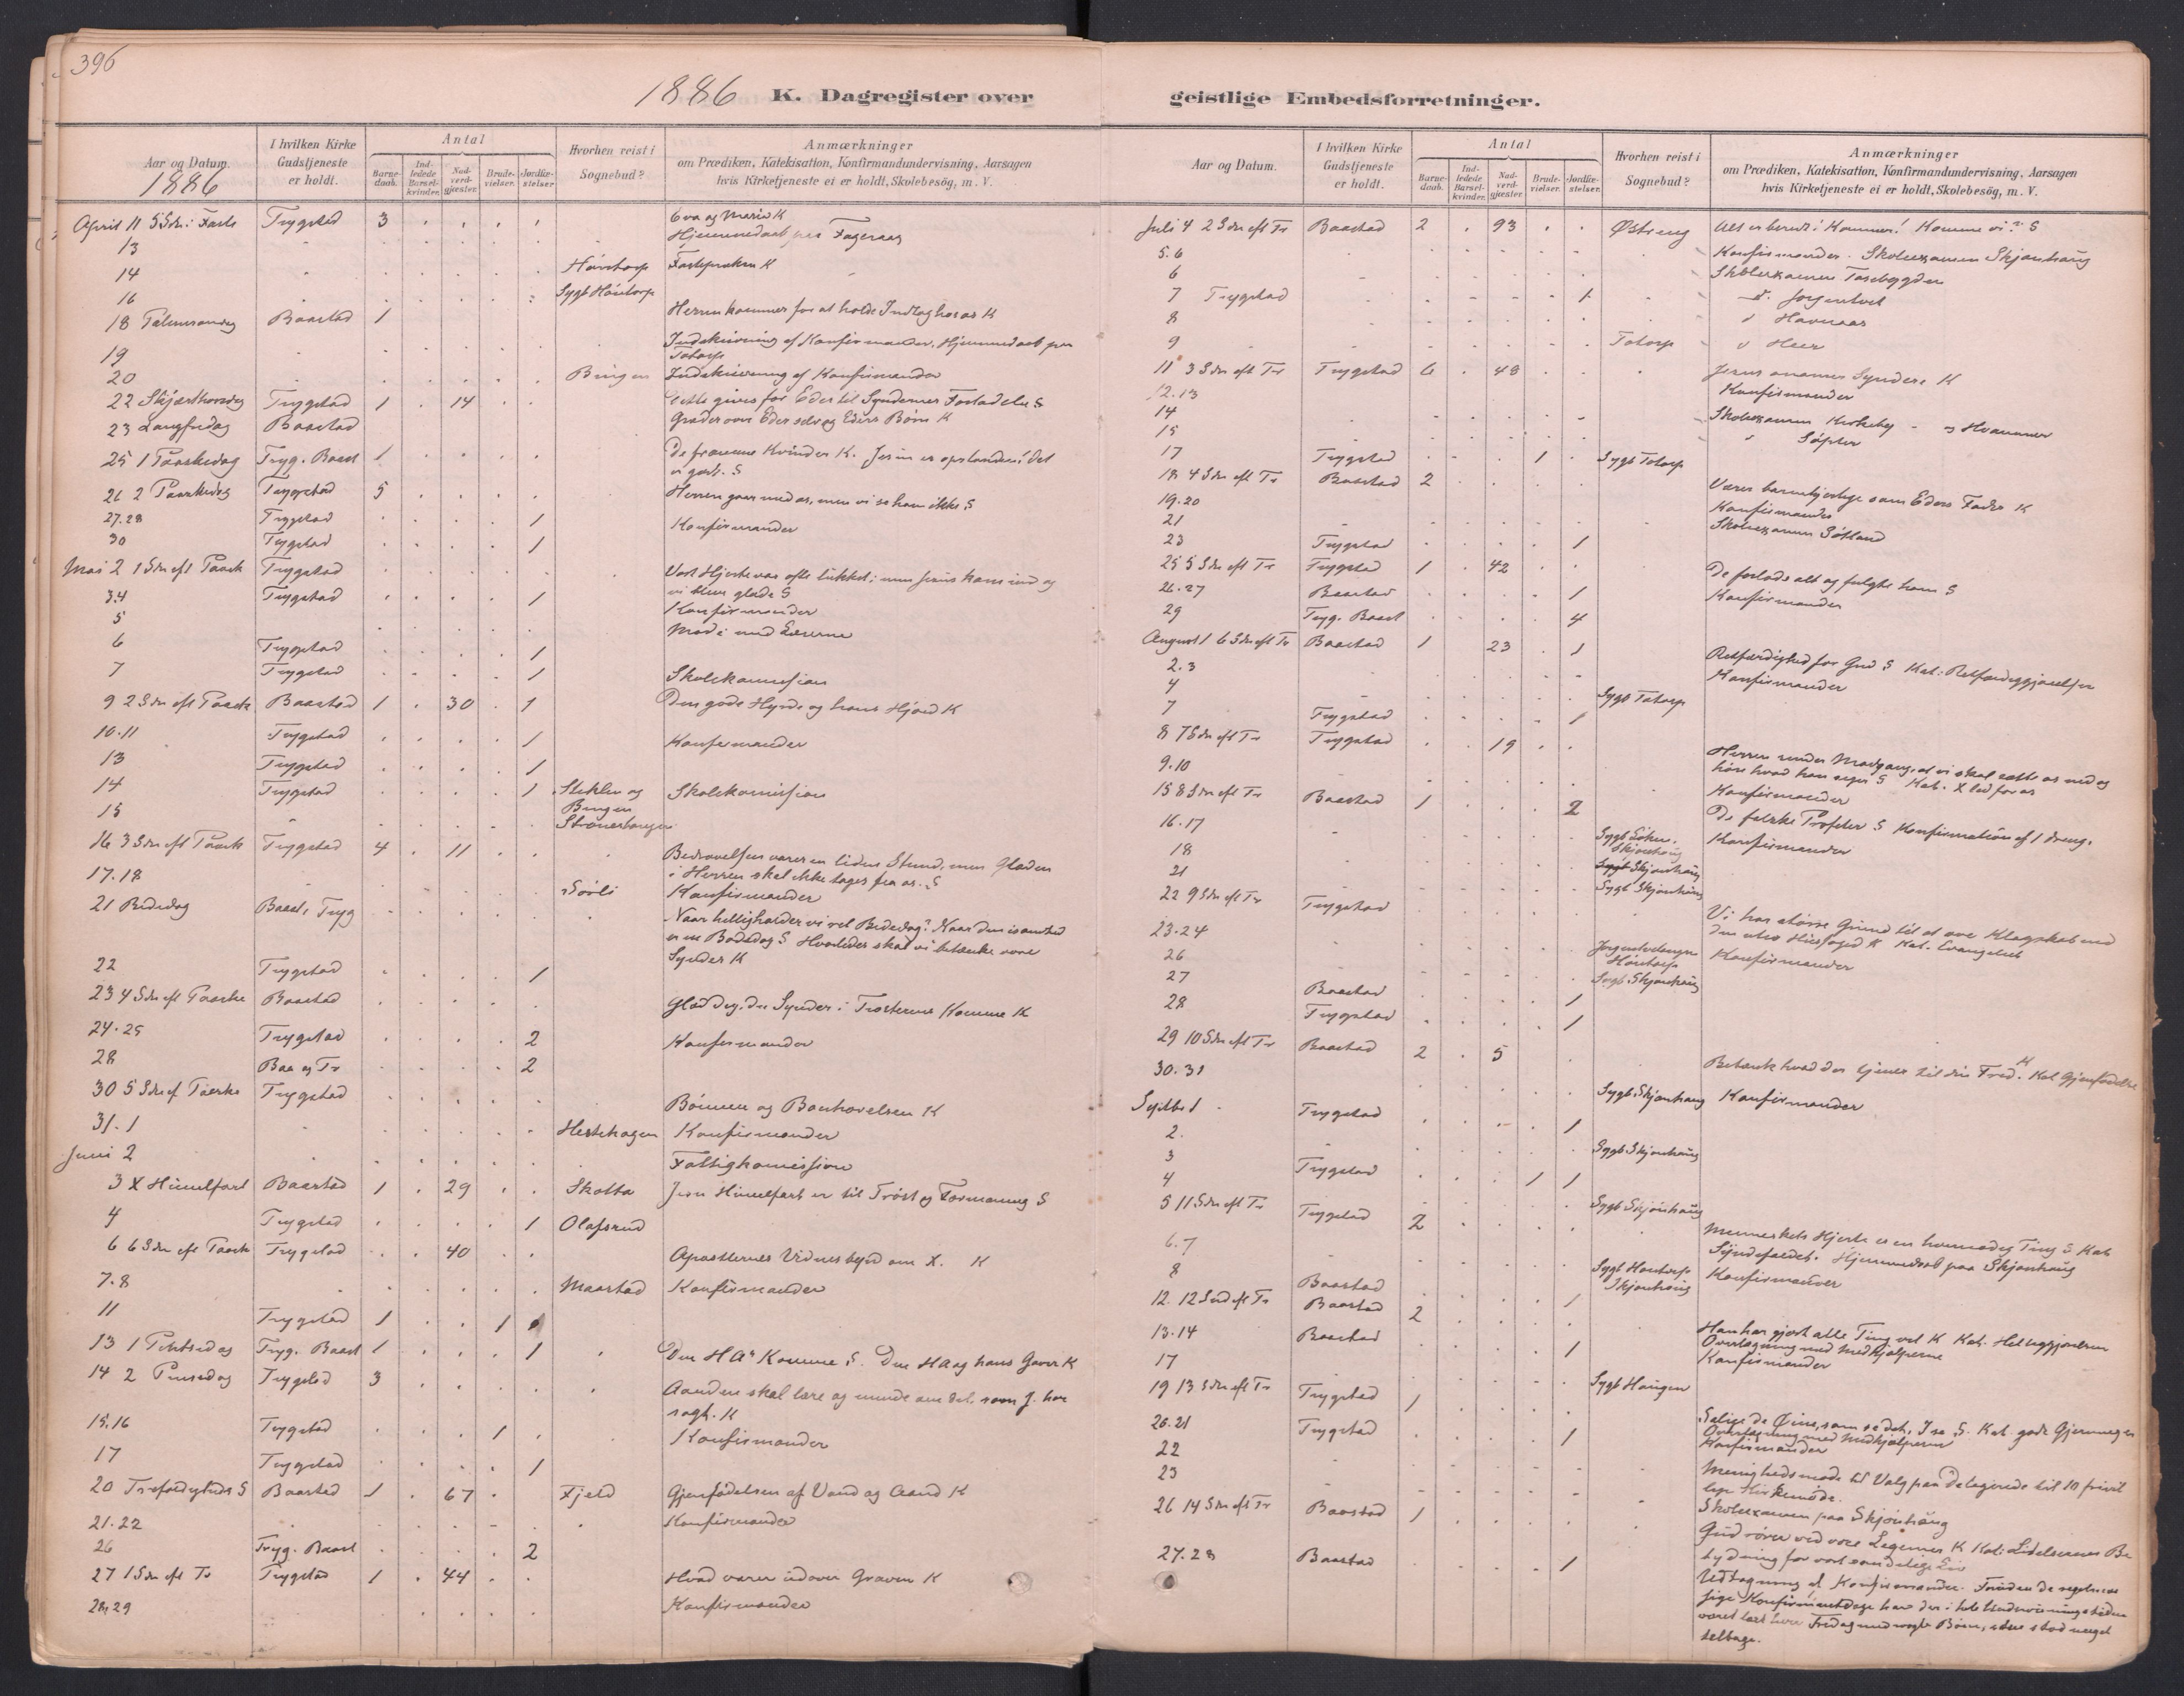 396
1886 K. Dagregister over
Aar og Datum.
1886
I hvilken Kirke Gudstjeneste er holdt.
Antal
Barne-daab.
Ind-ledede Barsel-kvinder.
Nad-verd-gjæster.
Brude-vielser.
Jordfæ-stelser
Hvorhen reist i Sognebud?
Anmærkninger
om Prædiken, Katekisation, Konfirmandundervisning, Aarsagen
hvis Kirketjeneste ei er holdt, Skolebesög, m. V.
April 11 5 Sdn i Faste Trygstad 3 Eva og Maria K
13 Hjemmedaab paa Fageraas
14 Høntorp Fastepræken K
16 Sygb Høntorp
18 Palmesøndag Baastad 1 Herren kommer for at holde Indtog hos os K
19 Indskrivning af Konfirmander. Hjemmedaab paa
Totorp
20 Bingen Indskrivning af Konfirmander
22 Skjærthorsdag Trygstad 1 14 Dette gives for Eder til Syndernes Forladelse S
23 Langfredag Baastad Græder over Eder selv og Eders Børn K
25 1 Paaskedag Tryg. Baast 1 De fromme Kvinder K. Jesus er opstanden! Det
er godt. S
26 2 Paaskedag Trygstad 5 Herren gaar med os, men vi se ham ikke S
27.28 Trygstad 1 Konfirmander
30 Trygstad 1
Mai 2 1 Sdn eft Paask Trygstad Vort Hjerte var ofte lukket; men Jesus kom ind og
vi blive glade S
3.4 Trygstad 1 Konfirmander
5 Møde med Lærerne
6 Trygstad 1
7 Trygstad 1 Skolekommission
9 2 Sdn eft Paask Baastad 1 30 1 Den gode Hyrde og hans Hjord K
10.11 Trygstad 1 Konfirmander
13 Trygstad 1
14 Trygstad 1 Sleklev og Skolekomission
Bingen
15
16 3 Sdn eft Paask Trygstad 4 11 Bedrøvelsen varer en liden Stund, men Glæden
i Herren skal ikke tages fra os. S
17.18 Sørli Konfirmander
21 Bededag Baast, Tryg Naar helligholder vi vel Bededag? Naar den isandhed
er en Bodsdag S Hvorledes skal vi betænke vore
Synder K
22 Trygstad 1
23 4 Sdn eft Paaske Baastad Glæd dig, du Synder: Trøsteren Komme K
24.25 Trygstad 2 Konfirmander
28 Baa og Tr 2
30 5 Sdn ef Paaske Trygstad Bønnen og Bønhørelsen K
31.1 Hestehagen Konfirmander
Juni 2 Fattigkomission
3 X Himelfart Baastad 1 29 Skotta Jesu Himelfart er til Trøst og Formaning S
4 Trygstad 1 Olafsrud
6 6 Sdn eft Paask Trygstad 40 Apostlernes Vidnesbyrd om X. K
7.8 Maastad Konfirmander
11 Trygstad 1 1
13 1 Pintsedag Tryg. Baast 1 1 Den HAa Komme S. Den HA og hans Gaver K
14 2 Pinsedag Trygstad 3 Aanden skal lære og minde om det, som J. har
sagt. K
15.16 Trygstad 1 Konfirmander
17 Trygstad 1
20 Trefoldigheds S Baastad 1 67 Fjeld Gjenfødelsen af Vand og Aand K
21.22 Konfirmander
26 Tryg. Baast 2
27 1 Sdn eft Tr Trygstad 1 44 Hvad varer udover Graven K
28,29 Konfirmander
geistlige Embedsforretninger.
Aar og Datum.
I hvilken Kirke Gudstjeneste er holdt.
Antal
Barne-daab.
Ind-ledede Barsel-kvinder.
Nad-verd-gjæster
Brude-vielser.
Jordfæ-stelser.
Hvorhen reist i Sognebud?
Anmærkninger
om Prædiken, Katekisation, Konfirmandundervisning, Aarsagen
hvis Kirketjeneste ei er holdt, Skolebesög, m. V.
Juli 4 2 Sdn eft Tr Baastad 2 93 Østreng Alt er beredt! Kommer! Komme vi? S
5.6 Konfirmander. Skoleexamen Skjønhaug
6 Skoleexamen
7 Trygstad 1
8 Havnaas
9 Totorp Heer
11 3 Sdn eft Tr Trygstad 6 48 Jesus annamer Syndere K
12.13 Konfirmander
14 Skoleexamen Kirkeby og Hvammer
15
17 Trygstad 1 Sygb Totorp
18 4 Sdn eft Tr Baastad 2 Værer barmhjertige som Eders Fader K
19.20 Konfirmander
21 Skoleexamen
23 Trygstad 1
25 5 Sdn eft Tr Trygstad 1 42 De forlode alt og fulgte ham S
26.27 Baastad 1 Konfirmander
29 Tryg. Baast 4
August 1 6 Sdn eft Tr Baastad 1 23 1 Retfærdighed for Gud S Kat: Retfærdiggjørelsen
2.3 Konfirmander
4 Sygb Totorp
7 Trygstad 1
8 7 Sdn eft Tr Trygstad 19 Herren sender Modgang, at vi skal sætte os ned og
høre hvad han siger S Kat. X led for os
9.10 Konfirmander
15 8 Sdn eft Tr Baastad 1 2 De falske Profeter S Konfirmation af 1 dreng.
16.17 Konfirmander
18 Skjønhaug
21 Sygb Skjønhaug
22 9 Sdn eft Tr Trygstad Vi har større Grund til at øve Klogskab end
den utro Husfoged K Kat. Evangeliet
23-24 Konfirmander
26 Høntorp
27 Baastad 1 Sygb. Skjønhaug
28 Trygstad 1
29 10 Sdn eft Tr Baastad 2 5 Betænk hvad der tjener til din Fred. K Kat Gjenfødelse
30.31 Sygb. Skjønhaug Konfirmander
Septbr 1 Trygstad 1
2.
3 Sygb Skjønhaug
4 Trygstad 1 1
5 11 Sdn eft Tr Trygstad 2 Sygb Skjønhaug Menneskets Hjerte er en Ting S Kat
Syndefaldet. Hjemmedaab paa Skjønhaug
6.7 Sygb Høntorp Konfirmander
Skjønhaug
8 Baastad 1
12. 12 Snd eft Tr Baastad 2 Han har gjort alle Ting vel K Kat. Helliggjørelsen
Overlægning med Medhjælperne
13.14 Baastad 1 Konfirmander
17 Sygb Haugen
19 13 Sdn eft Tr Trygstad 1 Salige de Øine, som se det, I se S. Kat. gode Gjerninger
Overlægning med Medhjælperne
20.21 Trygstad 1 Konfirmander
22 Menighedsmøde til Valg paa Delegerede til 10 frivil
lige Kirkemøde.
23 Skoleexamen paa Skjønhaug
26 14 Sdn eft Tr Baastad 1 Gud rører ved vore Legemer K Kat: Lidelsernes Be
tydning for vort aandelige Liv
27.28 Baastad 1 Udtagning af Konfirmander. Foruden de regelmæs
sige Konfirmantdage har der i hele Undervisningstiden
været læst hver Fredag med nogle Børn, som stod meget
tilbage.